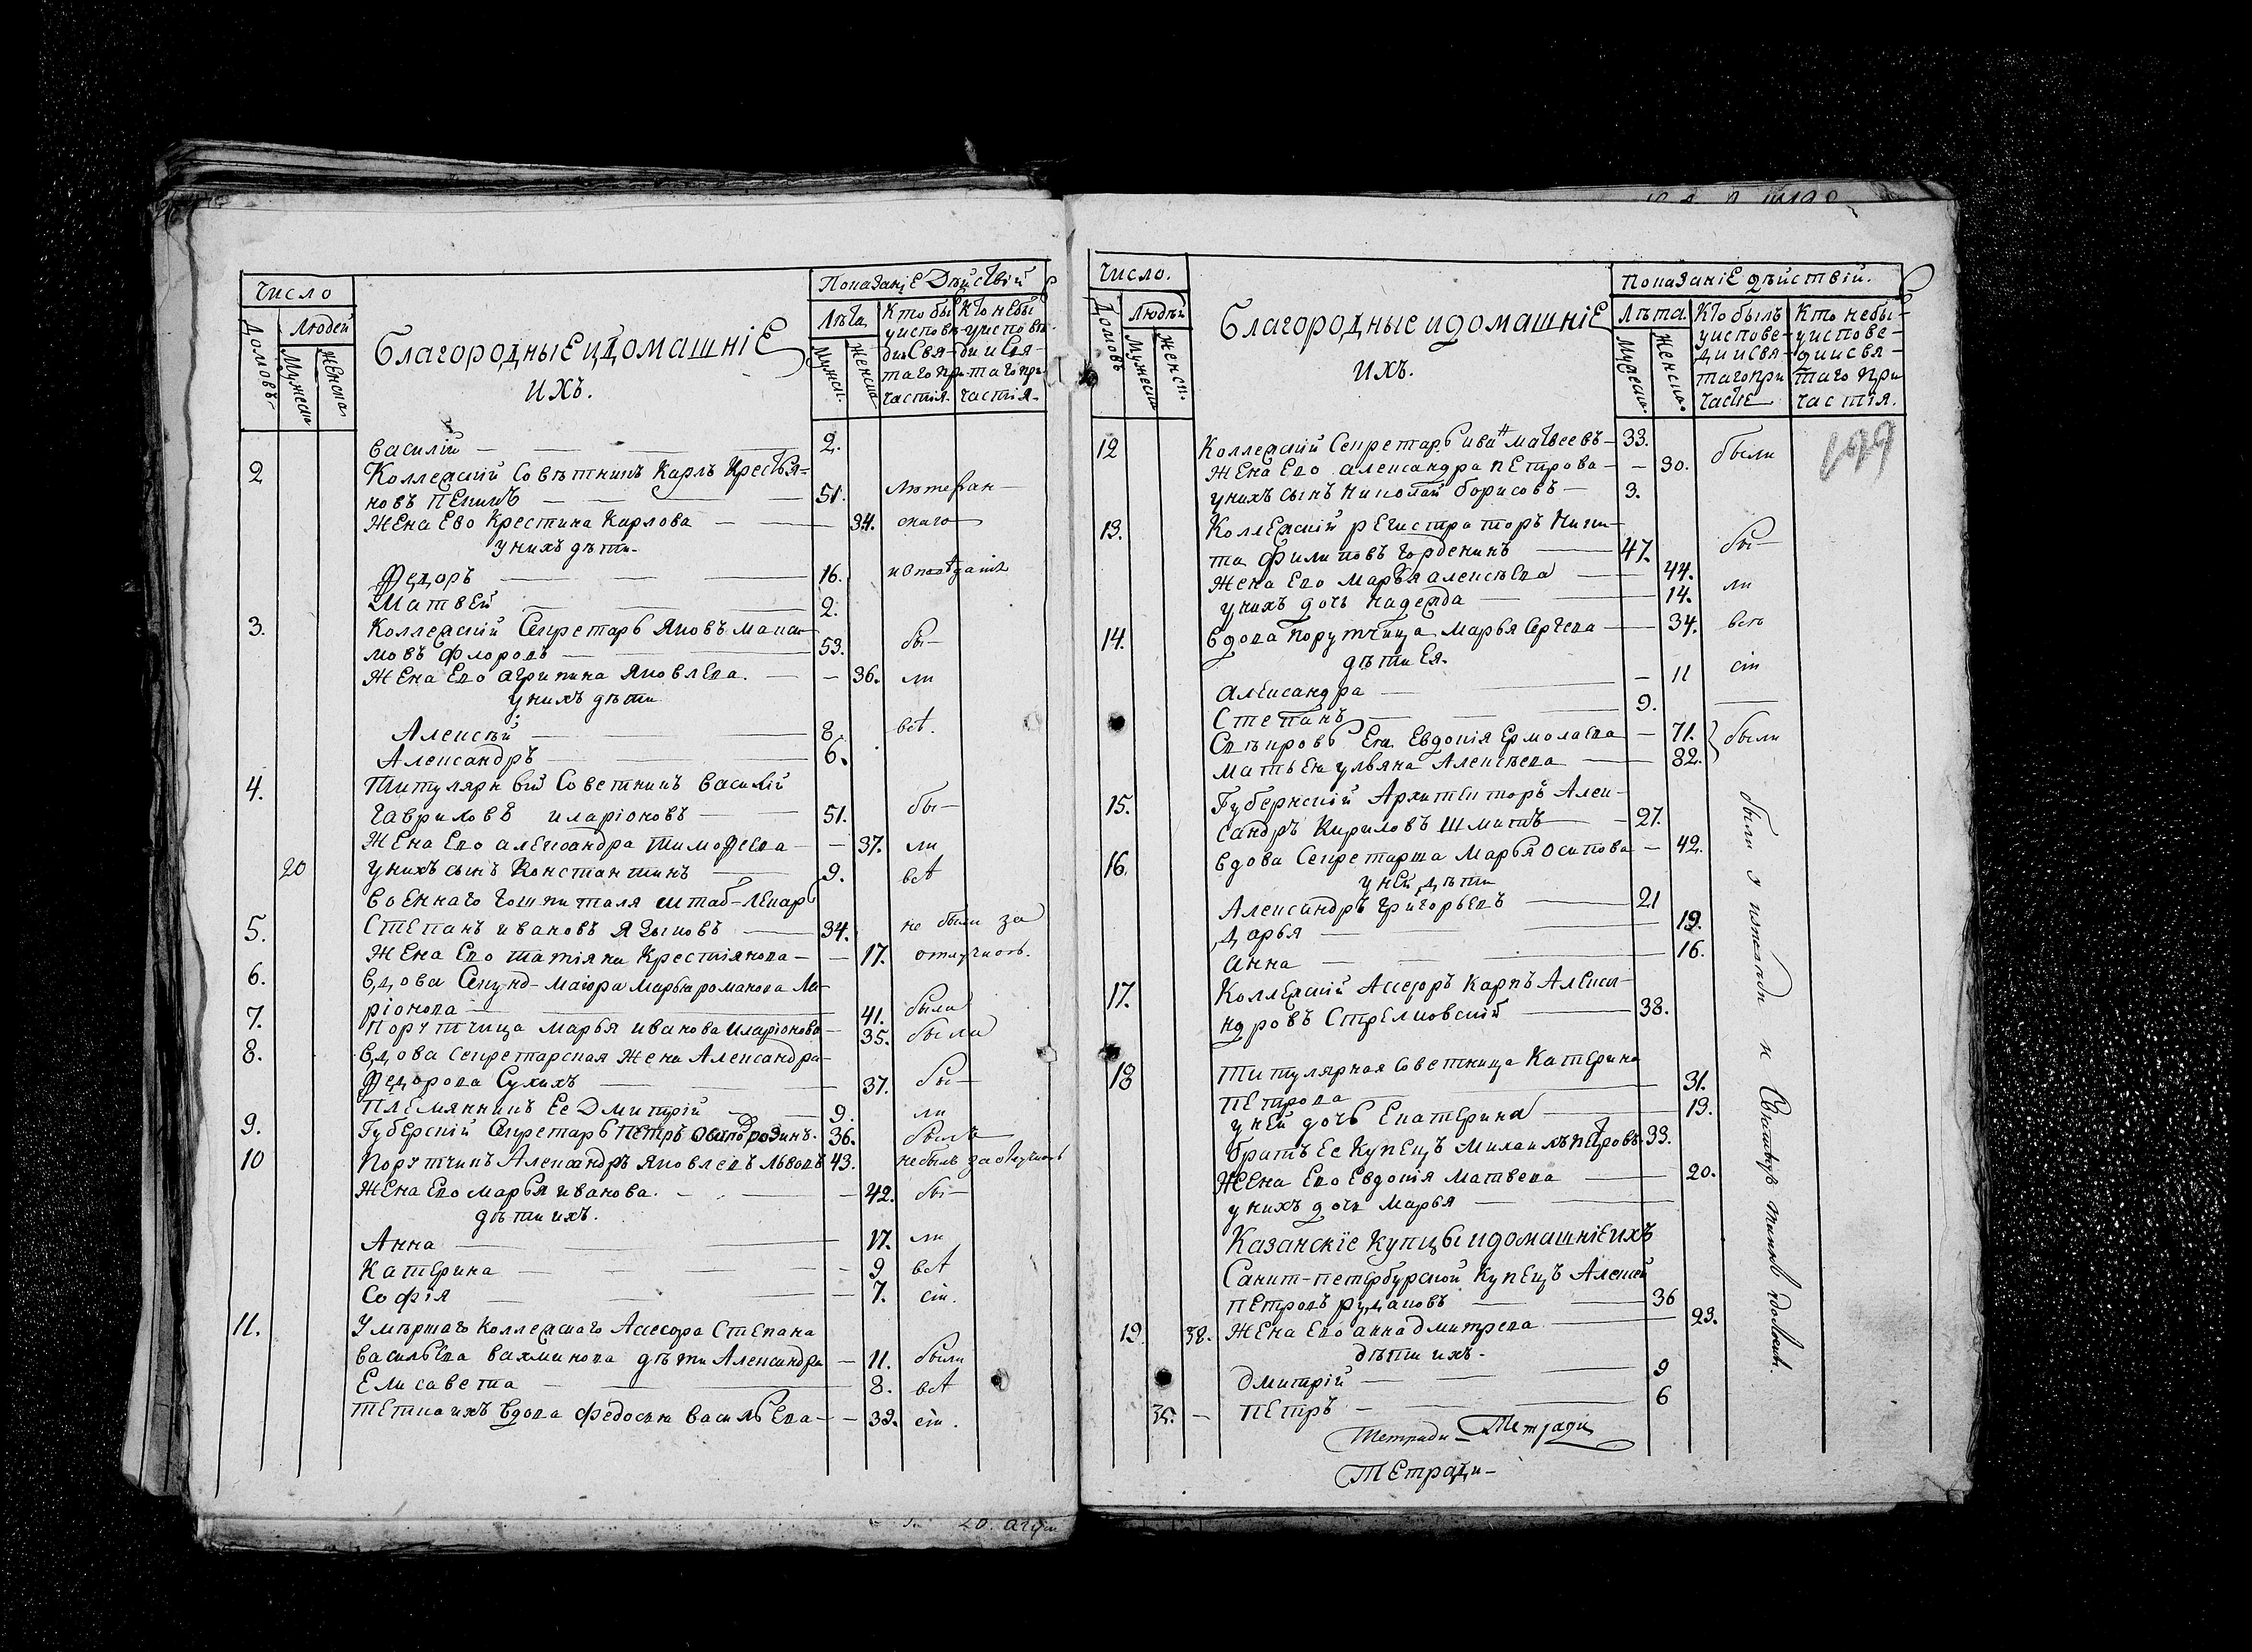 Число
Показаніе Дѣйствій
Домовъ
Людей
Мужеска
Женска
Благородные и домашніе
ихъ.
Лѣта
Мужск.
Женска
Кто бы
у испове-
ди и Свя-
таго при-
частія.
Кто не бы
у исповѣ-
ди и Свя-
таго при-
частія.
Василій — 2.
2 Коллежскій Совѣтникъ Карлъ Крестья-
новъ — 51. Лютеран-
Жена Ево Крестина Карлова — 34. скаго
у нихъ дѣти
Федоръ — 16.
Матвей — 2.
3. Коллежскій Секретарь Яковъ Макси-
мовъ Флоровъ — 53. бы-
Жена Ево Агрипина Яковлева. — 36. ли
у нихъ дѣти
Алексѣй — 8. всѣ.
Александръ — 6.
4. Титулярный Советникъ Василій
Гавриловъ иларіоновъ — 51. бы-
Жена Ево Александра Тимофеева — 37. ли
20 у нихъ сынъ Константинъ — 9. всѣ
Военнаго Гошпиталя штаб-лекарь
5. Степанъ ивановъ Языковъ — 34. не были за
Жена Ево Татіяна Крестіянова — 17. отлучкою.
6. Вдова Секунд-Маіора Марья романова Ла-
ріонова — 41. была
7. Порутчица Марья иванова иларіонова — 35. была
8. Вдова секретарская жена Александра
Федорова Сухихъ — 37. бы-
Племянникъ Ее Дмитрій — 9. ли
9. Губерскій Секретарь Петръ 36. былъ
10 Порутчикъ Александръ Яковлевъ Львовъ 43. не былъ за отлучкою
Жена Ево Марья иванова. — 42. бы-
дѣти ихъ.
Анна — 17. ли
Катерина — 9 всѣ
Софія — 7. сіи.
11. Умершаго Коллежскаго Асесора Степана
Васильева дѣти Александра — 11. были
Елисавета — 8. всѣ
Тетка ихъ вдова Федосья Васильева — 39. сіи.
Число.
Показаніе дѣйствій.
Домовъ
Людѣй
Мужеска
Женск.
Благородные и домашніе
ихъ.
Лѣта.
Мужеска.
Женска.
Кто былъ
у испове-
ди и свя-
таго при
частіе
Кто не бы-
у испове-
ди и свя-
таго при
частія.
199
12 Коллежскій Секретарь иванъ Матвеевъ — 33. были
Жена Ево Александра Петрова — 30.
у нихъ сынъ Николай Борисовъ — 3.
13. Коллежскій регистраторъ Ники-
та Филиповъ Горденинъ — 47. бы-
Жена Ево Марья Алексѣева — 44.
у нихъ дочь надежда — 14. ли
14. Вдова Порутчица Марья Сергеева — 34. всѣ
дѣти Ея.
Александра — 11 сіи
Степанъ — 9.
Свѣкровь Ея Евдокія Ермолаева — 71. были
Мать Ея ульяна Алексѣева — 82.
15. Губернскій Архитекторъ Алек-
сандръ Кириловъ Шмитъ — 27.
16. Вдова Секретарша Марья осипова — 42.
у ней дѣти
Александръ Григорьевъ — 21
Дарья — 19.
Анна — 16.
17. Коллежскій Асесоръ Карпъ Алекса-
ндровъ Стрелковскій — 38.
18 Титулярная Советница Катерина
Петрова — 31.
у ней дочь Екатерина — 13.
братъ Ее Купецъ Михаилъ Петровъ 33.
Жена Ево Евдокія Матвева — 20.
у нихъ дочь Марья —
Казанскіе Купцы и домашніе ихъ
Санкт-петербурской Купецъ Алексей
Петровъ рудаковъ — 36
19 38. Жена Ево анна дмитрева — 23.
дѣти ихъ.
Дмитрій — 9
35. Петръ — 6
Тетради — Тетради
Тетради —